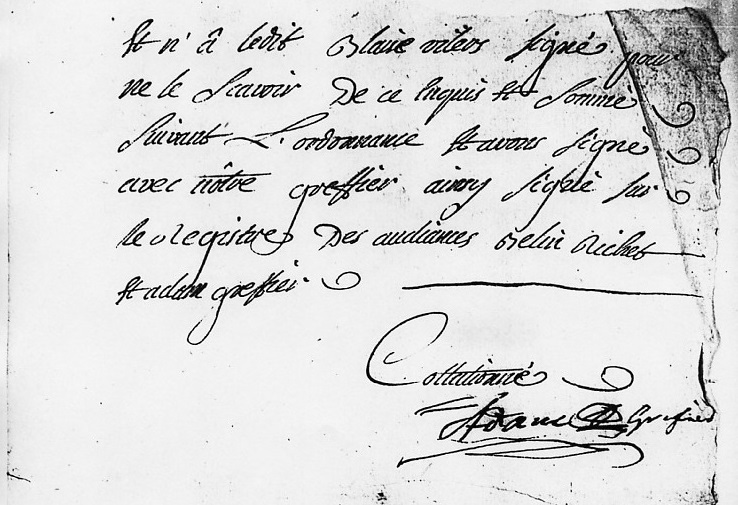 Et n'â ledit Blaise villers signé pour
ne le scavoir De ce Enquis Et sommé
suivant L'ordonnance Et avons signé
avec nôtre greffier ainsy signé sur
le Registre Des audiances Belin Richet
Et adam greffier
Collationné
Adam Greffier